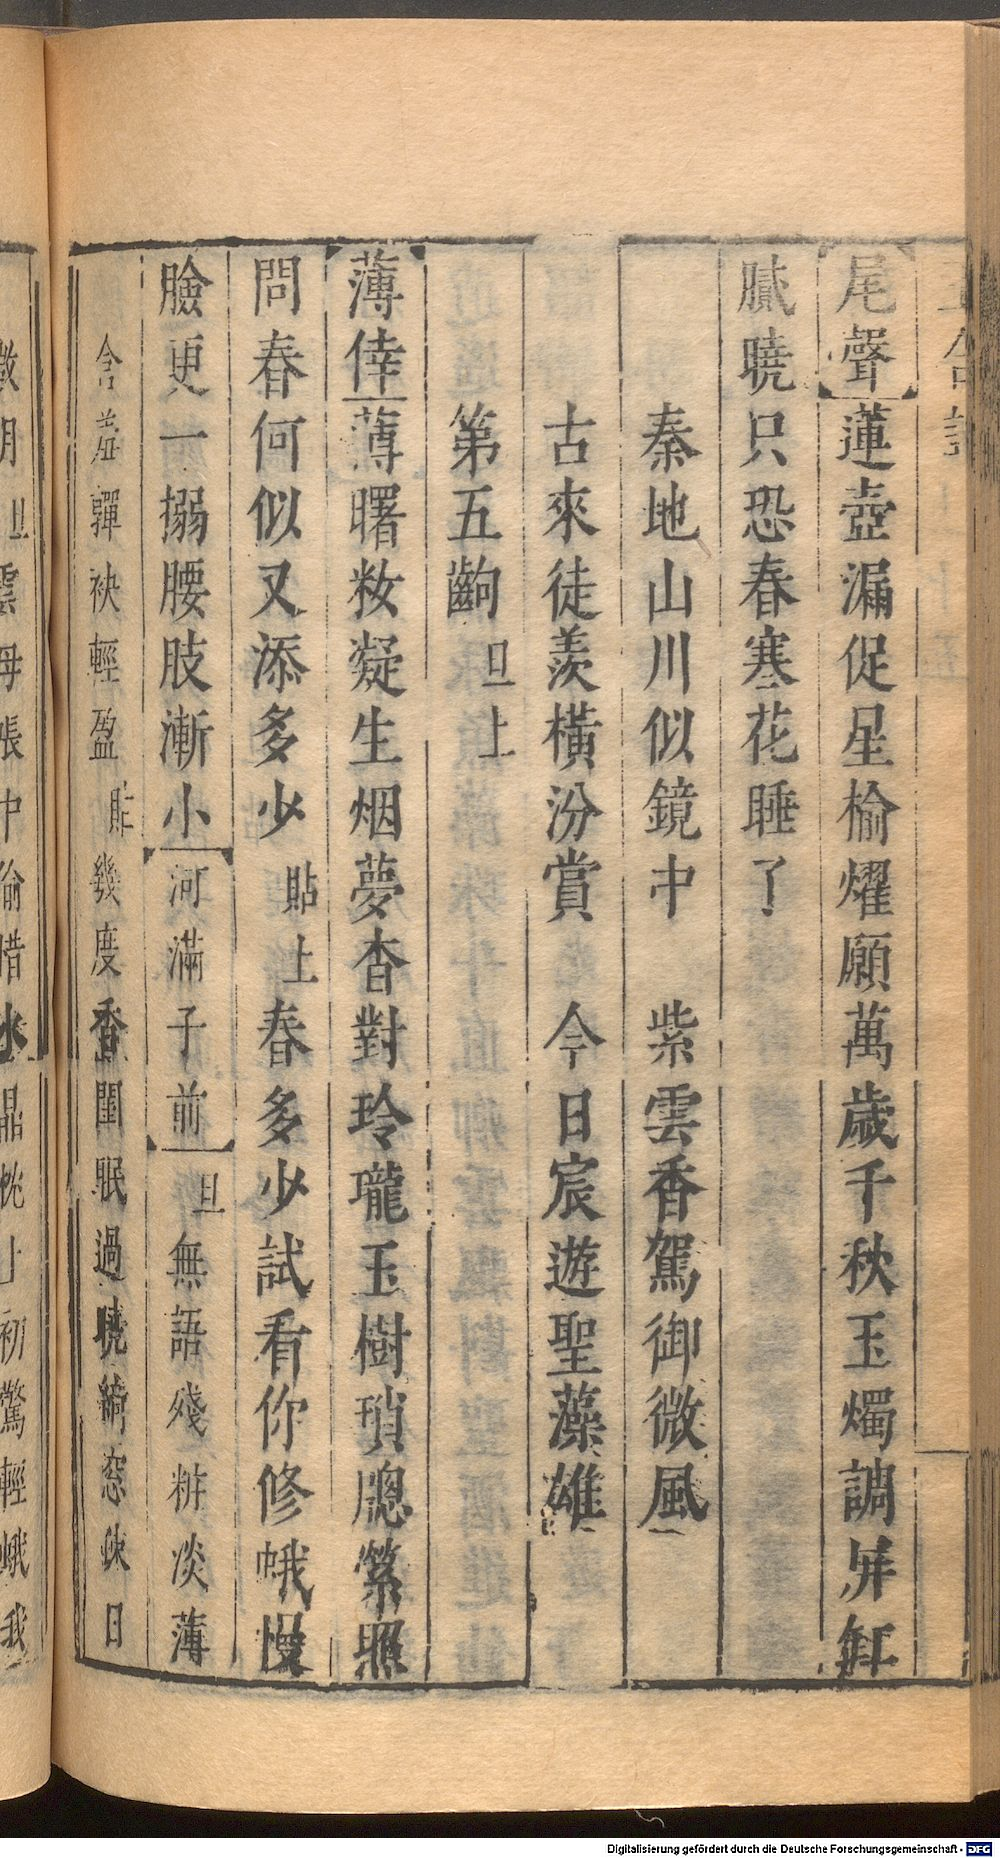 尾聲蓮壺漏促星榆燿願萬歲千秋玉燭調屏缸
膩曉只恐春寒花睡了
秦地山川似鏡中　紫雲香駕御微風
古來徒羨橫汾賞　今日宸遊聖藻雄
第五齣　旦上
薄倖薄曙籹凝生烟夢杳對玲瓏玉樹瑣牕縈照
問春何似又添多少　貼上春多少試看你修蛾慢
臉更一搦腰肢漸小河滿子前　旦無語殘粧淡薄
含羞嚲袂輕盈　貼幾度香閨眠過曉綺窓　日
旦雲母帳中偷惜水晶枕上初驚輕蛾我
Digitalisierung gefördert durch die Deutsche Forschungsgemeinschaft - DFG